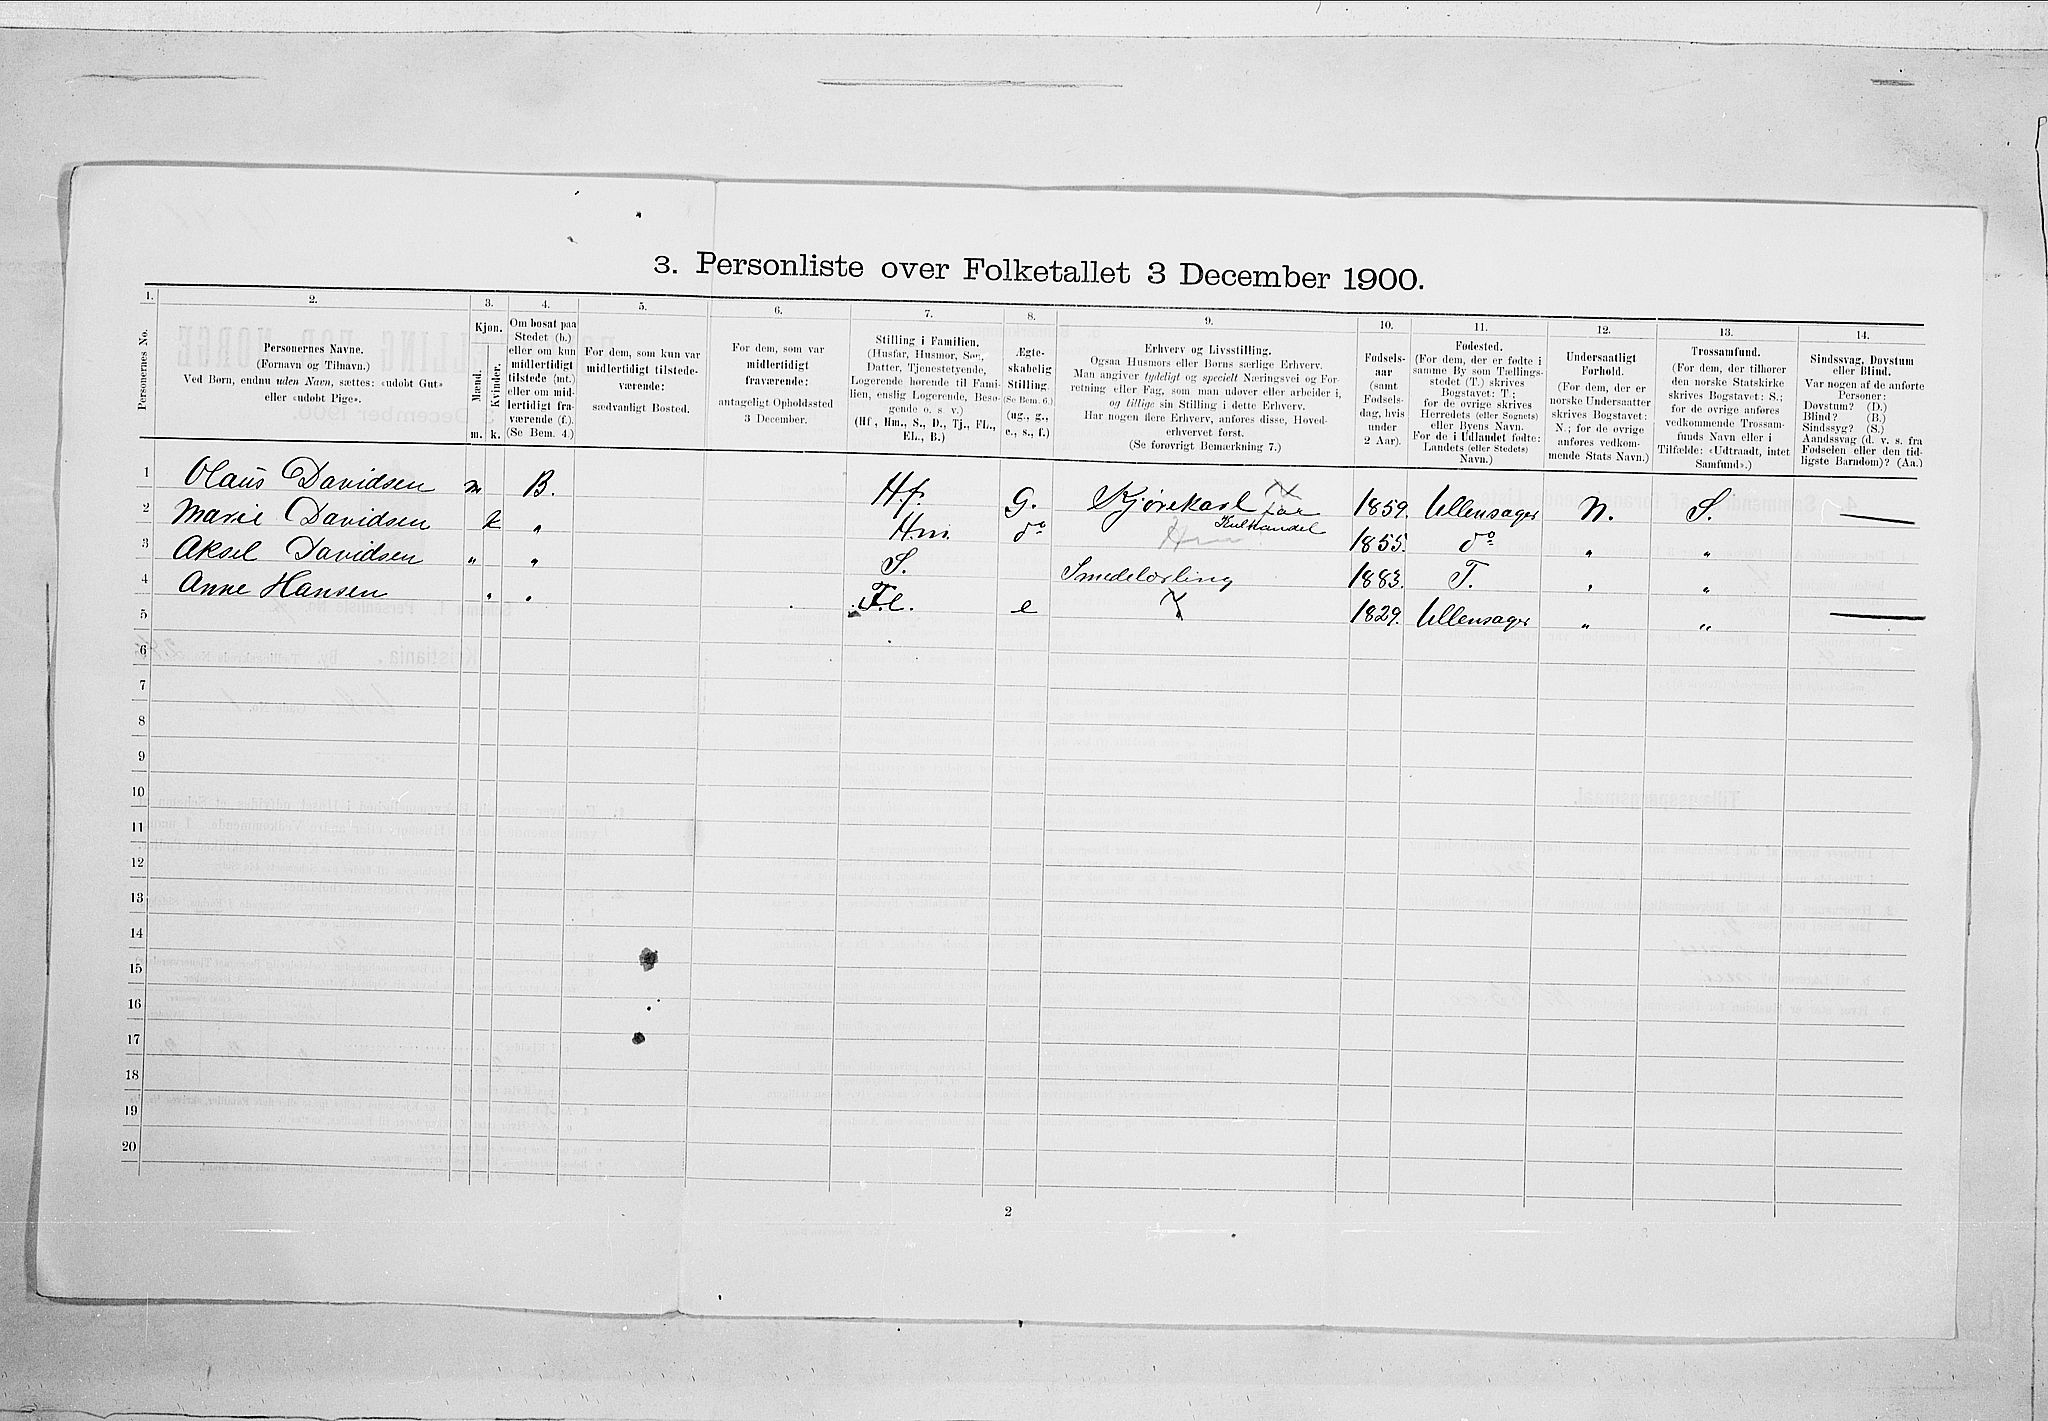 3. Personliste over Folketallet 3 December 1900.
1. 2. 3. 4. 5. 6. 7. 8. 9. 10. 11. 12. 13. 14.
Personernes No.
Personernes Navne.
(Fornavn og Tilnavn.)
Ved Børn, endnu uden Navn, sættes: «udøbt Gut»
eller «udøbt Pige».
Kjøn.
Mænd.
Kvinder.
m. k.
Om bosat paa
Stedet (b.)
eller om kun
midlertidigt
tilstede (mt.)
eller om mid-
lertidigt fra-
værende (f.).
(Se Bem. 4.)
For dem, som kun var
midlertidigt tilstede-
værende:
sædvanligt Bosted.
For dem, som var
midlertidigt
fraværende:
antageligt Opholdssted
3 December.
Stilling i Familien.
(Husfar, Husmor, Søn,
Datter, Tjenestetyende,
Logerende hørende til Fami-
lien, enslig Logerende, Besø-
gende o. s. v.)
(Hf, Hm., S., D., Tj., FL.,
EL., B.)
Ægte-
skabelig
Stilling.
(Se Bem. 6.)
(ug., g.,
e., s., f.)
Erhverv og Livsstilling.
Ogsaa Husmors eller Børns særlige Erhverv.
Man angiver tydeligt og specielt Næringsvei og For-
retning eller Fag, som man udøver eller arbeider i,
og tillige sin Stilling i dette Erhverv.
Har nogen flere Erhverv, anføres disse, Hoved-
erhvervet først.
(Se forøvrigt Bemærkning 7.)
Fødsels-
aar
(samt
Fødsels-
dag, hvis
under
2 Aar).
Fødested.
(For dem, der er fødte i
samme By som Tællings-
stedet (T.) skrives
Bogstavet: T;
for de øvrige skrives
Herredets (eller Sognets)
eller Byens Navn.
For de i Udlandet fødte:
Landets (eller Stedets)
Navn.)
Undersaatligt
Forhold.
(For dem, der er
norske Undersaatter
skrives Bogstavet:
N.; for de øvrige
anføres vedkom-
mende Stats Navn.)
Trossamfund.
(For dem, der tilhører
den norske Statskirke
skrives Bogstavet: S.;
for de øvrige anføres
vedkommende Trossam-
funds Navn eller i
Tilfælde: «Udtraadt, intet
Samfund».)
Sindssvag, Døvstum
eller Blind.
Var nogen af de anførte
Personer:
Døvstum? (D.)
Blind? (B.)
Sindssyg? (S.)
Aandssvag (d. v. s. fra
Fødselen eller den tid-
ligste Barndom)? (Aa.)
1 Olaus Davidsen m B. Hf. G. Kjørekarl 1859. Ullensager N. S.
2 Marie Davidsen k „ Hm do Kulhandel 1855. do „ „
3 Aksel Davidsen „ „ S. Smedelærling 1883. T. „ „
4 Anne Hansen „ „ F.L. e 1829. Ullensager „ „
5
6
7
8
9
10
11
12
13
14
15
16
17
18
19
20
2